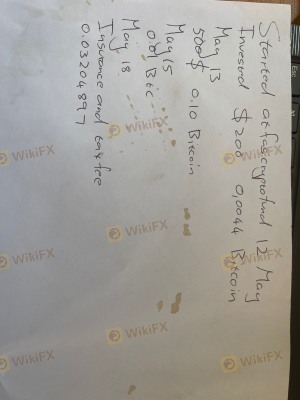 Started at fascryptofund 12 May
Invested $200 0,0044 Bitcoin
May 13
500$ 0.10 Bitcoin
May 15
0.01 Btc
May 18
Insurance and tax fee
0.03204897
WikiFX
WikiFX
WikiFX
WikiFX
WikiFX
WikiFX
WikiFX
WikiFX
WikiFX
WikiFX
WikiFX
WikiFX